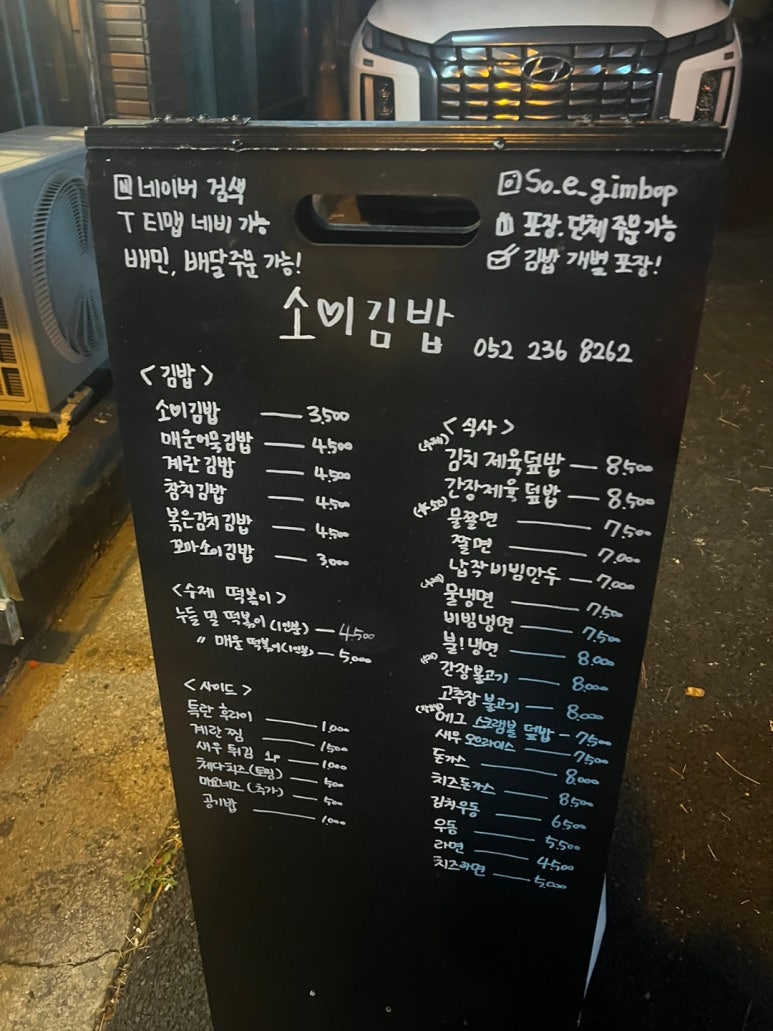 네이버 검색
T 티맵 네비 가능
배민, 배달주문 가능!
So_e_gimbop
포장, 단체 주문 가능
김밥 개별 포장!
소이김밥 052 236 8262
<김밥>
소이김밥 — 3,500
매운어묵김밥 — 4,500
계란김밥 — 4,500
참치김밥 — 4,500
볶은김치김밥 — 4,500
꼬마소이김밥 — 3,000
<수제 떡볶이>
누들 밀 떡볶이 (1인분) — 4,500
〃 매운 떡볶이 (1인분) — 5,000
<사이드>
특란 후라이 — 1,000
계란찜 — 1,500
새우 튀김 1p — 1,000
체다치즈 (토핑) — 500
마요네즈 (추가) — 500
공기밥 — 1,000
<식사>
김치제육덮밥 — 8,500
간장제육덮밥 — 8,500
물쫄면 — 7,500
쫄면 — 7,000
납작비빔만두 — 7,000
물냉면 — 7,500
비빔냉면 — 7,500
불!냉면 — 8,000
간장불고기 — 8,000
고추장 불고기 — 8,000
에그 스크램블 덮밥 — 7,500
새우 오므라이스 — 7,500
돈가스 — 8,000
치즈돈가스 — 8,500
김치우동 — 6,500
우동 — 5,500
라면 — 4,500
치즈라면 — 5,000